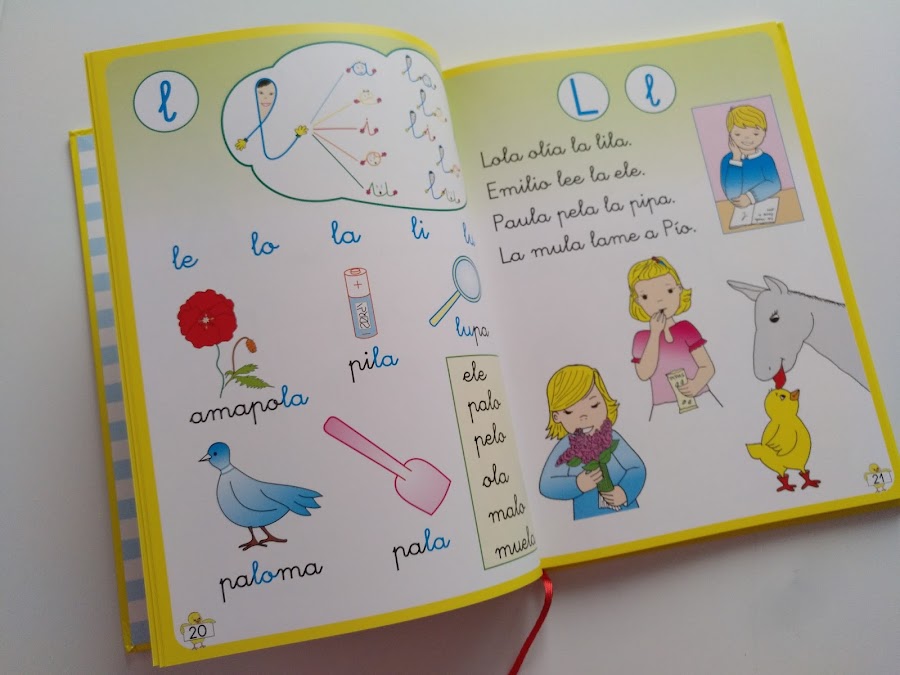 l
la
le
li
lo
lu
le lo la li lu
amapola
pila
lupa
paloma
pala
ele
palo
pelo
ola
malo
muela
20
L l
Lola olía la lila.
Emilio lee la ele.
Paula pela la pipa.
La mula lame a Pío.
21